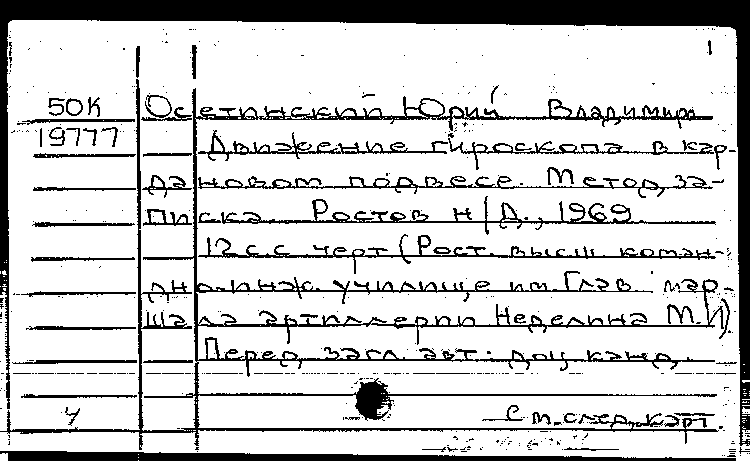 1
50К Осетинский, Юрий Владимир
19777 Движение гироскопа в кар-
дановом подвесе. Метод, за-
писка. Ростов н/Д., 1969.
12 с. с черт (Рост. высш коман-
дно-инж. училище им. Глав. мар-
шала артиллерии Неделина М.И)
Перед. загл. авт: доц. канд.
У См. след. карт.